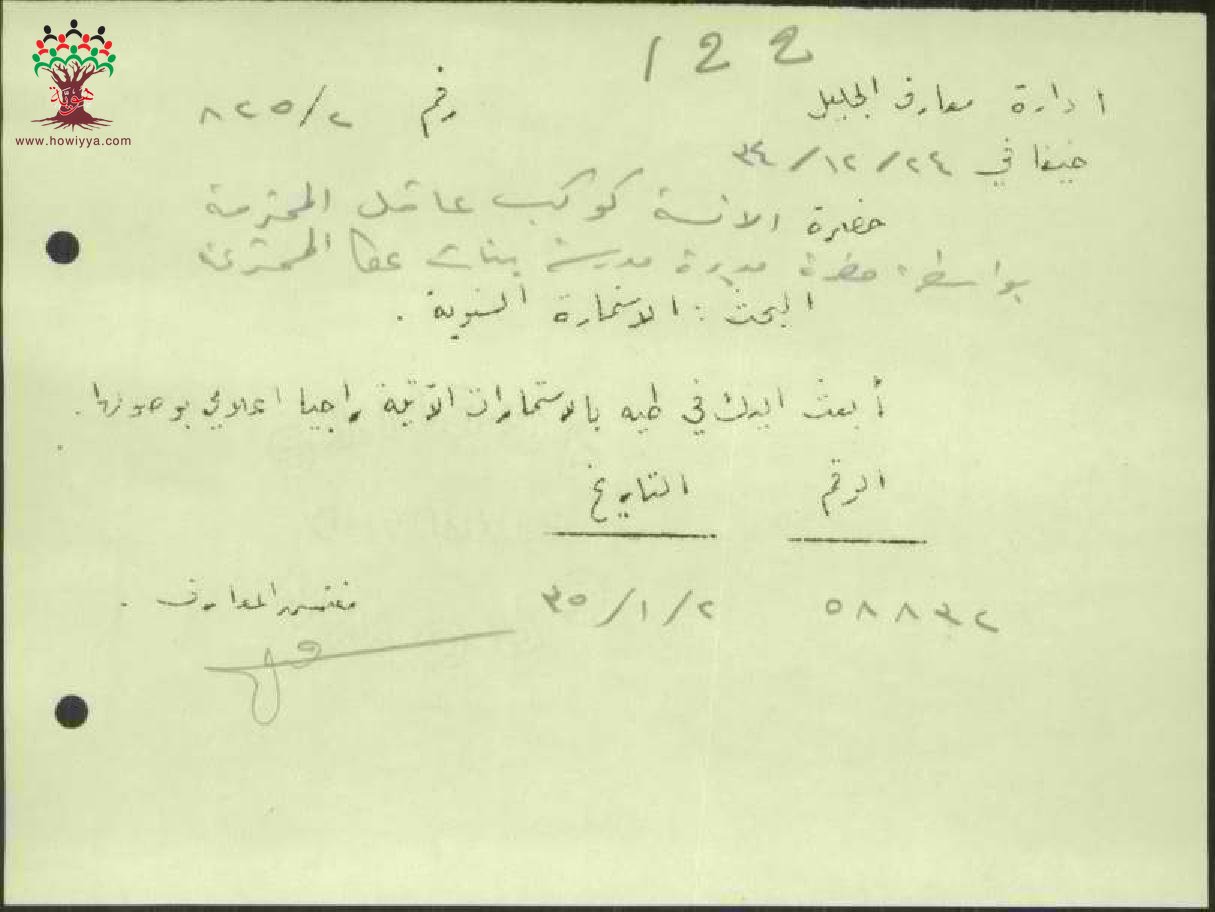 122
ادارة معارف الجليل
رقم ٨٢٥/٢
حيفا في ٣٤/١٢/٢٤
حضرة الانسة كوكب عاقل المحترمة
بواسطة حضرة مديرة مدرسة بنات عكا المحترمة
البحث : الاستمارة السنوية .
أبعث اليك في طيه بالاستمارات الآتية راجيا اعلامي بوصولها .
الرقم التاريخ
٥٨٨٣٢ ٣٥/١/٢
مفتش المعارف .
هوية
www.howiyya.com